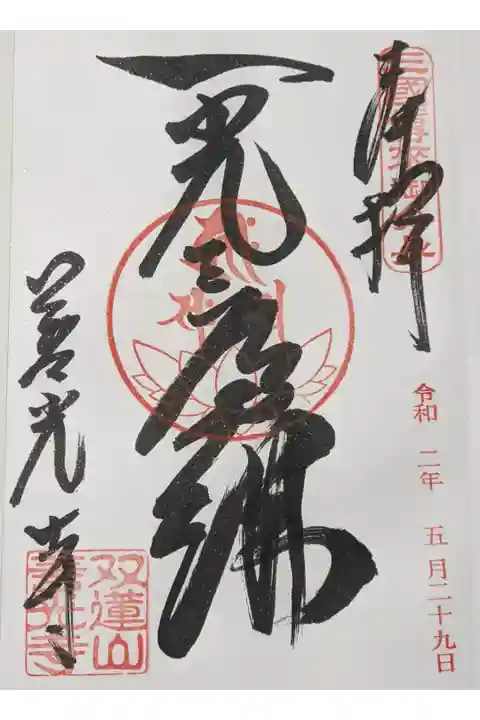 奉拝
三國傳来御
令和 二年 五月二十九日
一光三尊佛
善光寺
双蓮山
善光寺